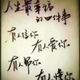 人生最幸福
的四件事
有人信你
有人爱你
有人陪你
有人等你